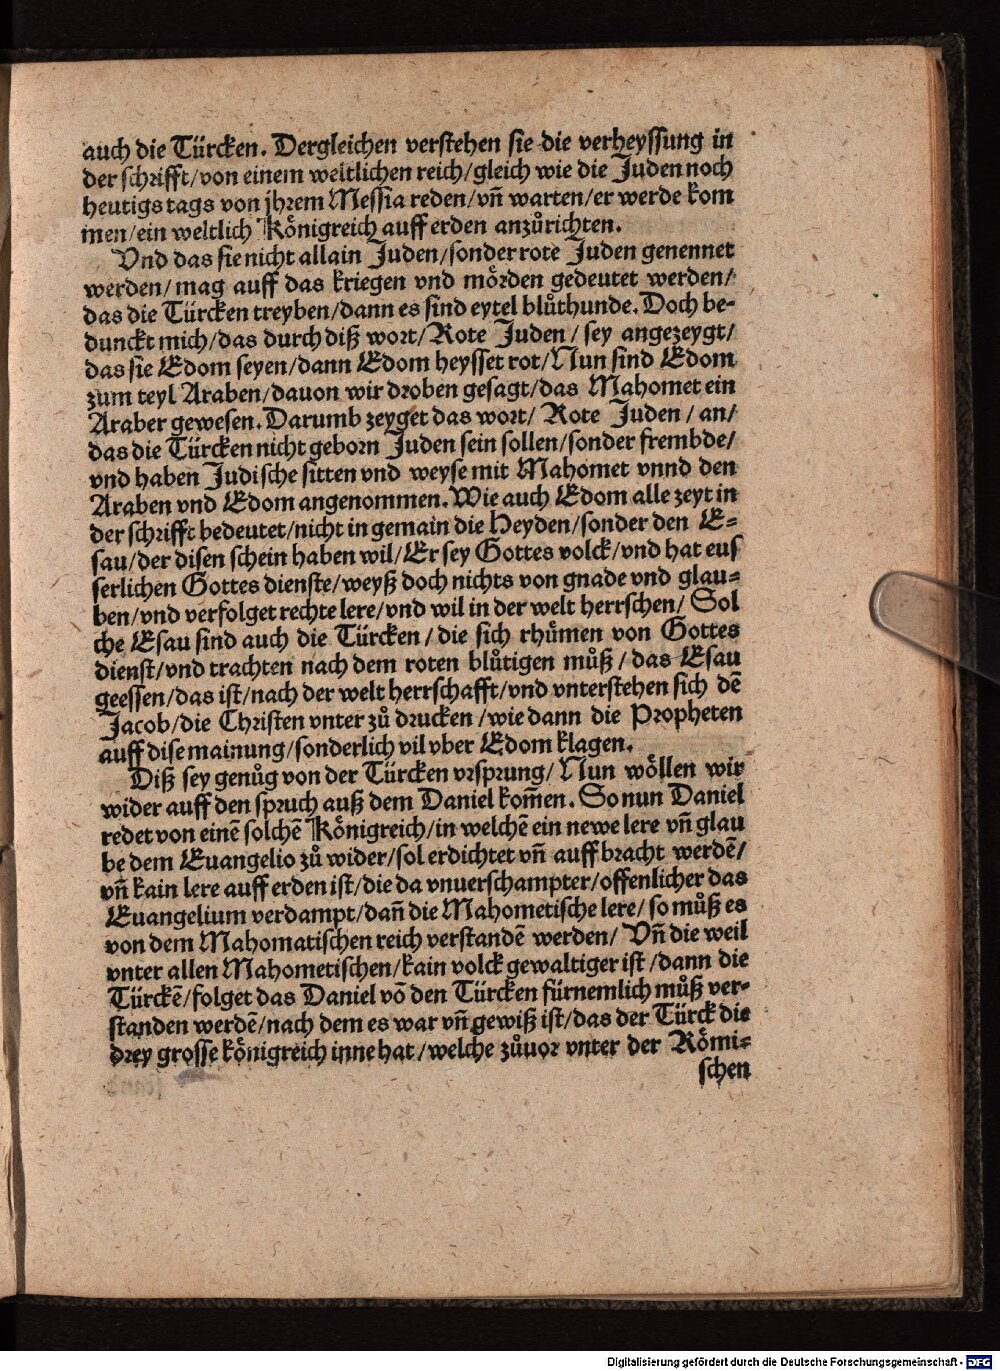 auch die Türcken. Dergleichen verstehen sie die verheyssung in
der schrifft/von einem weltlichen reich/gleich wie die Juden noch
heutigs tags von jhrem Messia reden/vn̄ warten/er werde kom
men/ein weltlich Königreich auff erden anzůrichten.
Vnd das sie nicht allain Juden/sonder rote Juden genennet
werden/mag auff das kriegen vnd mörden gedeutet werden/
das die Türcken treyben/dann es sind eytel blůthunde. Doch be-
dunckt mich/das durch diß wort/Rote Juden/sey angezeygt/
das sie Edom seyen/dann Edom heysset rot/Nun sind Edom
zum teyl Araben/dauon wir droben gesagt/das Mahomet ein
Araber gewesen. Darumb zeyget das wort/Rote Juden/an/
das die Türcken nicht geborn Juden sein sollen/sonder frembde/
vnd haben Judische sitten vnd weyse mit Mahomet vnnd den
Araben vnd Edom angenommen. Wie auch Edom alle zeyt in
der schrifft bedeutet/nicht in gemain die Heyden/sonder den E-
sau/der disen schein haben wil/Er sey Gottes volck/vnd hat eus
serlichen Gottes dienste/weyß doch nichts von gnade vnd glau-
ben/vnd verfolget rechte lere/vnd wil in der welt herrschen/Sol
che Esau sind auch die Türcken/die sich rhůmen von Gottes
dienst/vnd trachten nach dem roten blůtigen můß/das Esau
geessen/das ist/nach der welt herrschafft/vnd vnterstehen sich dē
Jacob/die Christen vnter zů drucken/wie dann die Propheten
auff dise mainung/sonderlich vil vber Edom klagen.
Diß sey genůg von der Türcken vrsprung/Nun wöllen wir
wider auff den spruch auß dem Daniel kom̄en. So nun Daniel
redet von einē solchē Königreich/in welchē ein newe lere vn̄ glau
be dem Euangelio zů wider/sol erdichtet vn̄ auff bracht werdē/
vn̄ kain lere auff erden ist/die da vnuerschampter/offenlicher das
Euangelium verdampt/dan̄ die Mahometische lere/so můß es
von dem Mahomatischen reich verstandē werden/Vn̄ die weil
vnter allen Mahometischen/kain volck gewaltiger ist/dann die
Türckē/folget das Daniel vō den Türcken fürnemlich můß ver-
standen werdē/nach dem es war vn̄ gewiß ist/das der Türck die
drey grosse königreich inne hat/welche zůuor vnter der Römi-
schen
Digitalisierung gefördert durch die Deutsche Forschungsgemeinschaft - DFG